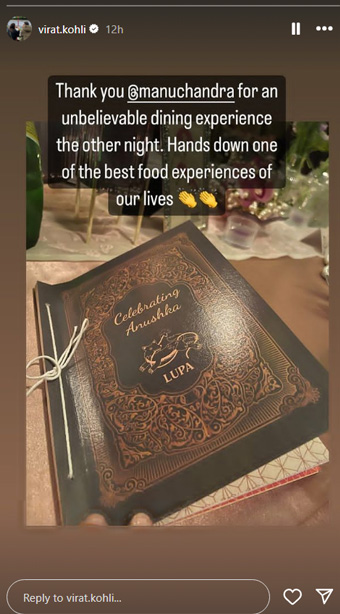 virat.kohli 12h
Thank you @manuchandra for an
unbelievable dining experience
the other night. Hands down one
of the best food experiences of
our lives 👏👏
Celebrating
Anushka
LUPA
Reply to virat.kohli...